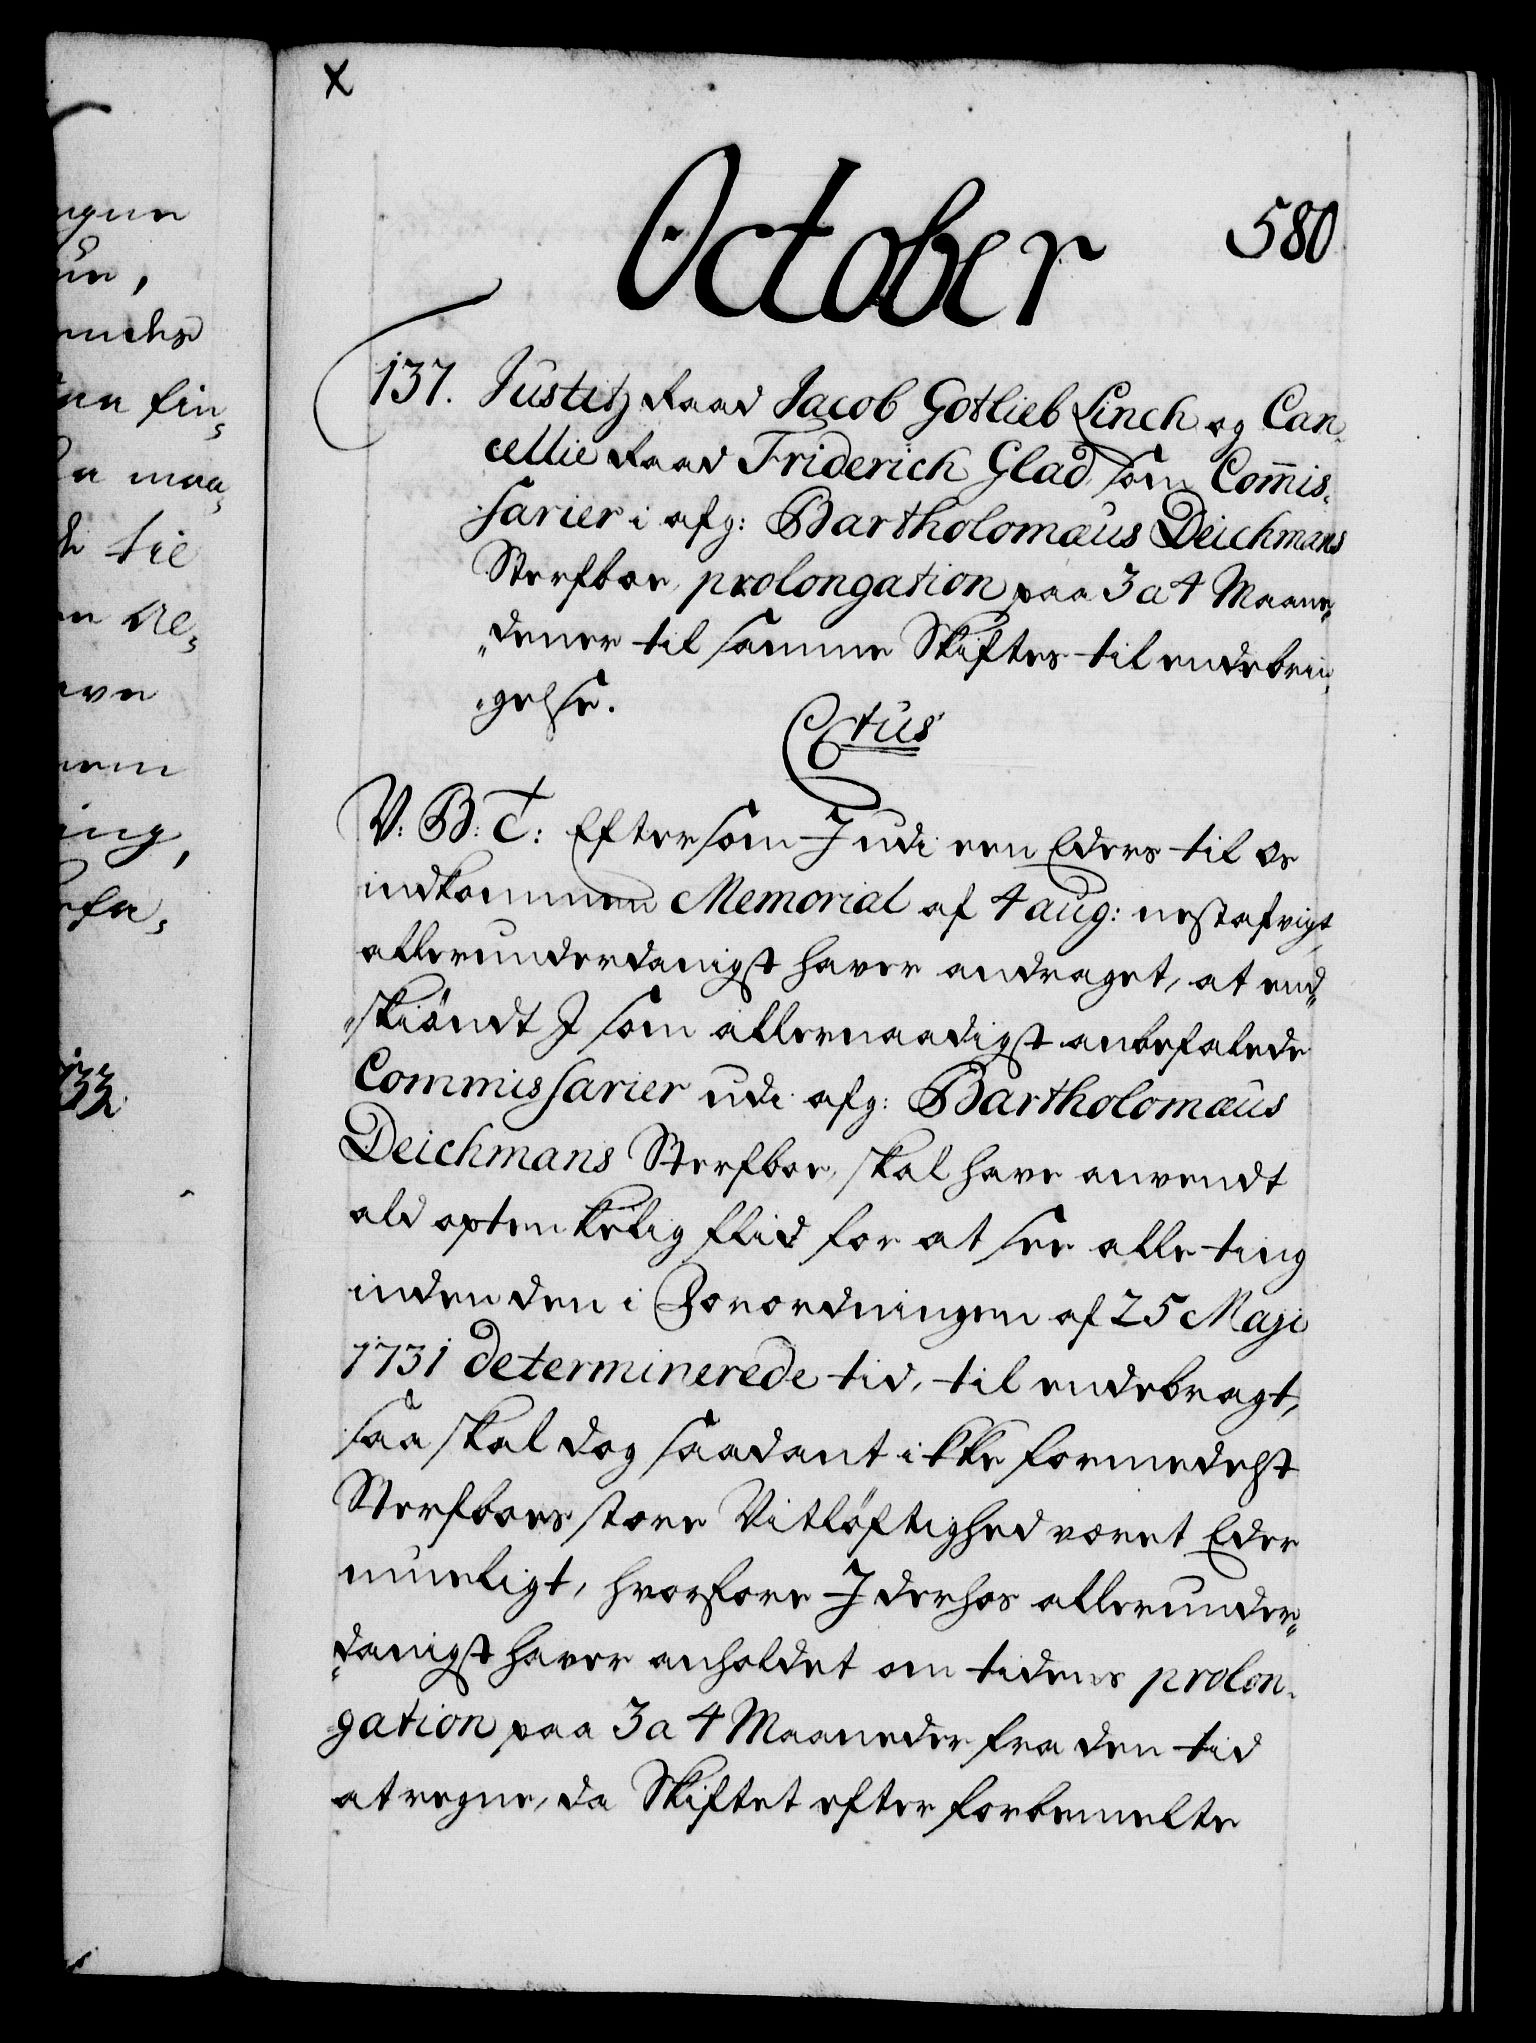 x
October
580
137. Justitz Raad Jacob Gotlieb Linch og Can-
cellie Raad Friderich Glad som Com̅is-
sarier i afg: Bartholomæus Deichmans
Sterfboe, prolongation paa 3 a 4 Maane„
„der til samme Skiftes til endebrin„
„gelse.
V: B: T: Eftersom I udi een Eders til os
indkommen Memorial af 4 aug: nestafvigt
allerunderdanigst haver andraget, at end„
„skiöndt I som allernaadigst anbefalede
Commissarier udi afg: Bartholomæus
Deichmans Sterfboe, skal have anvendt
ald optenkelig flid for at see alle ting
inden den i Forordningen af 25 Maji
1731 determinerede tid, til endebragt,
saa skal dog saadant ikke formedelst
Sterfboes store Vitlöftighed været Eder
mueligt, hvorfore I derhos allerunder„
„danigst haver anholdet om tidens prolon-
gation paa 3 a 4 Maaneder fra den tid
at regne, da Skiftet efter forbemelte